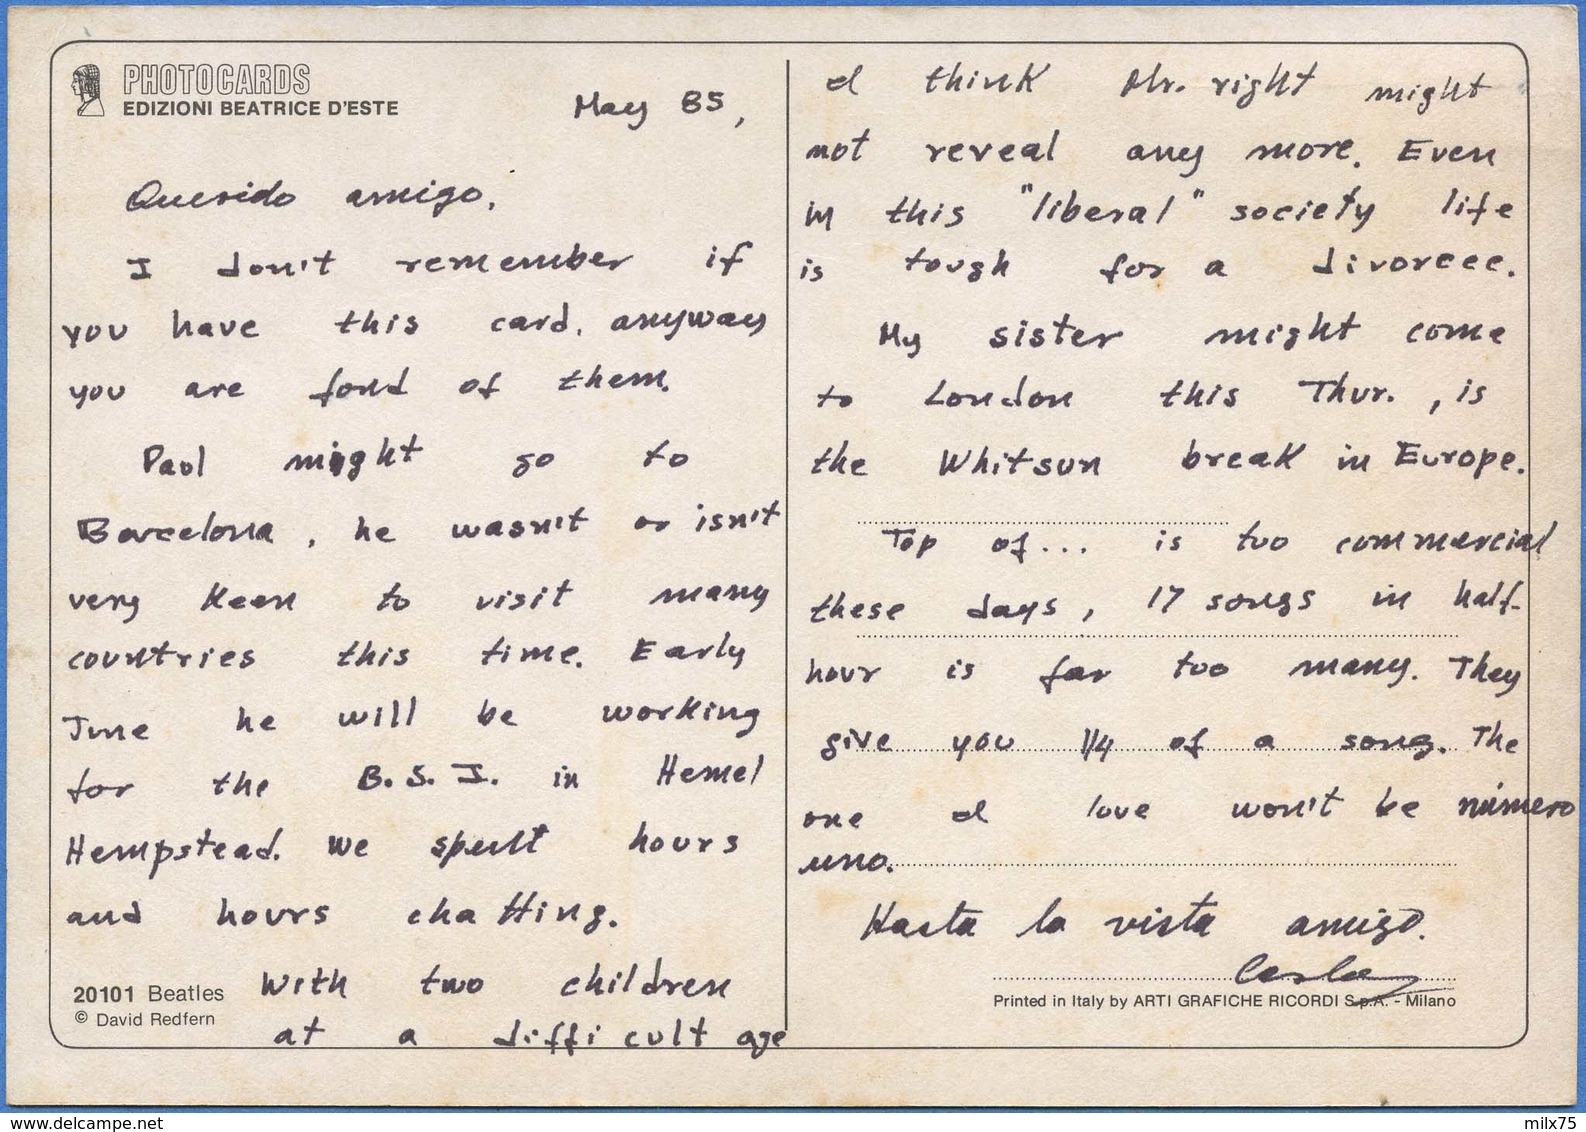 PHOTOCARDS
EDIZIONI BEATRICE D'ESTE
May 85,
Querido amigo,
I don't remember if
you have this card, anyways
you are fond of them.
Paul might go to
Barcelona, he wasn't or isn't
very keen to visit many
countries this time. Early
June he will be working
for the B.S.I. in Hemel
Hempstead. We spent hours
and hours chatting.
With two children
at a difficult age
20101 Beatles
© David Redfern
I think Mr. right might
not reveal any more. Even
in this "liberal" society life
is tough for a divorcee.
My sister might come
to London this Thur., is
the Whitsun break in Europe.
Top of... is too commercial
these days, 17 songs in half-
hour is far too many. They
give you 1/4 of a song. The
one I love won't be número
uno.
Hasta la vista amigo.
Printed in Italy by ARTI GRAFICHE RICORDI S.p.A. - Milano
www.delcampe.net
milx75